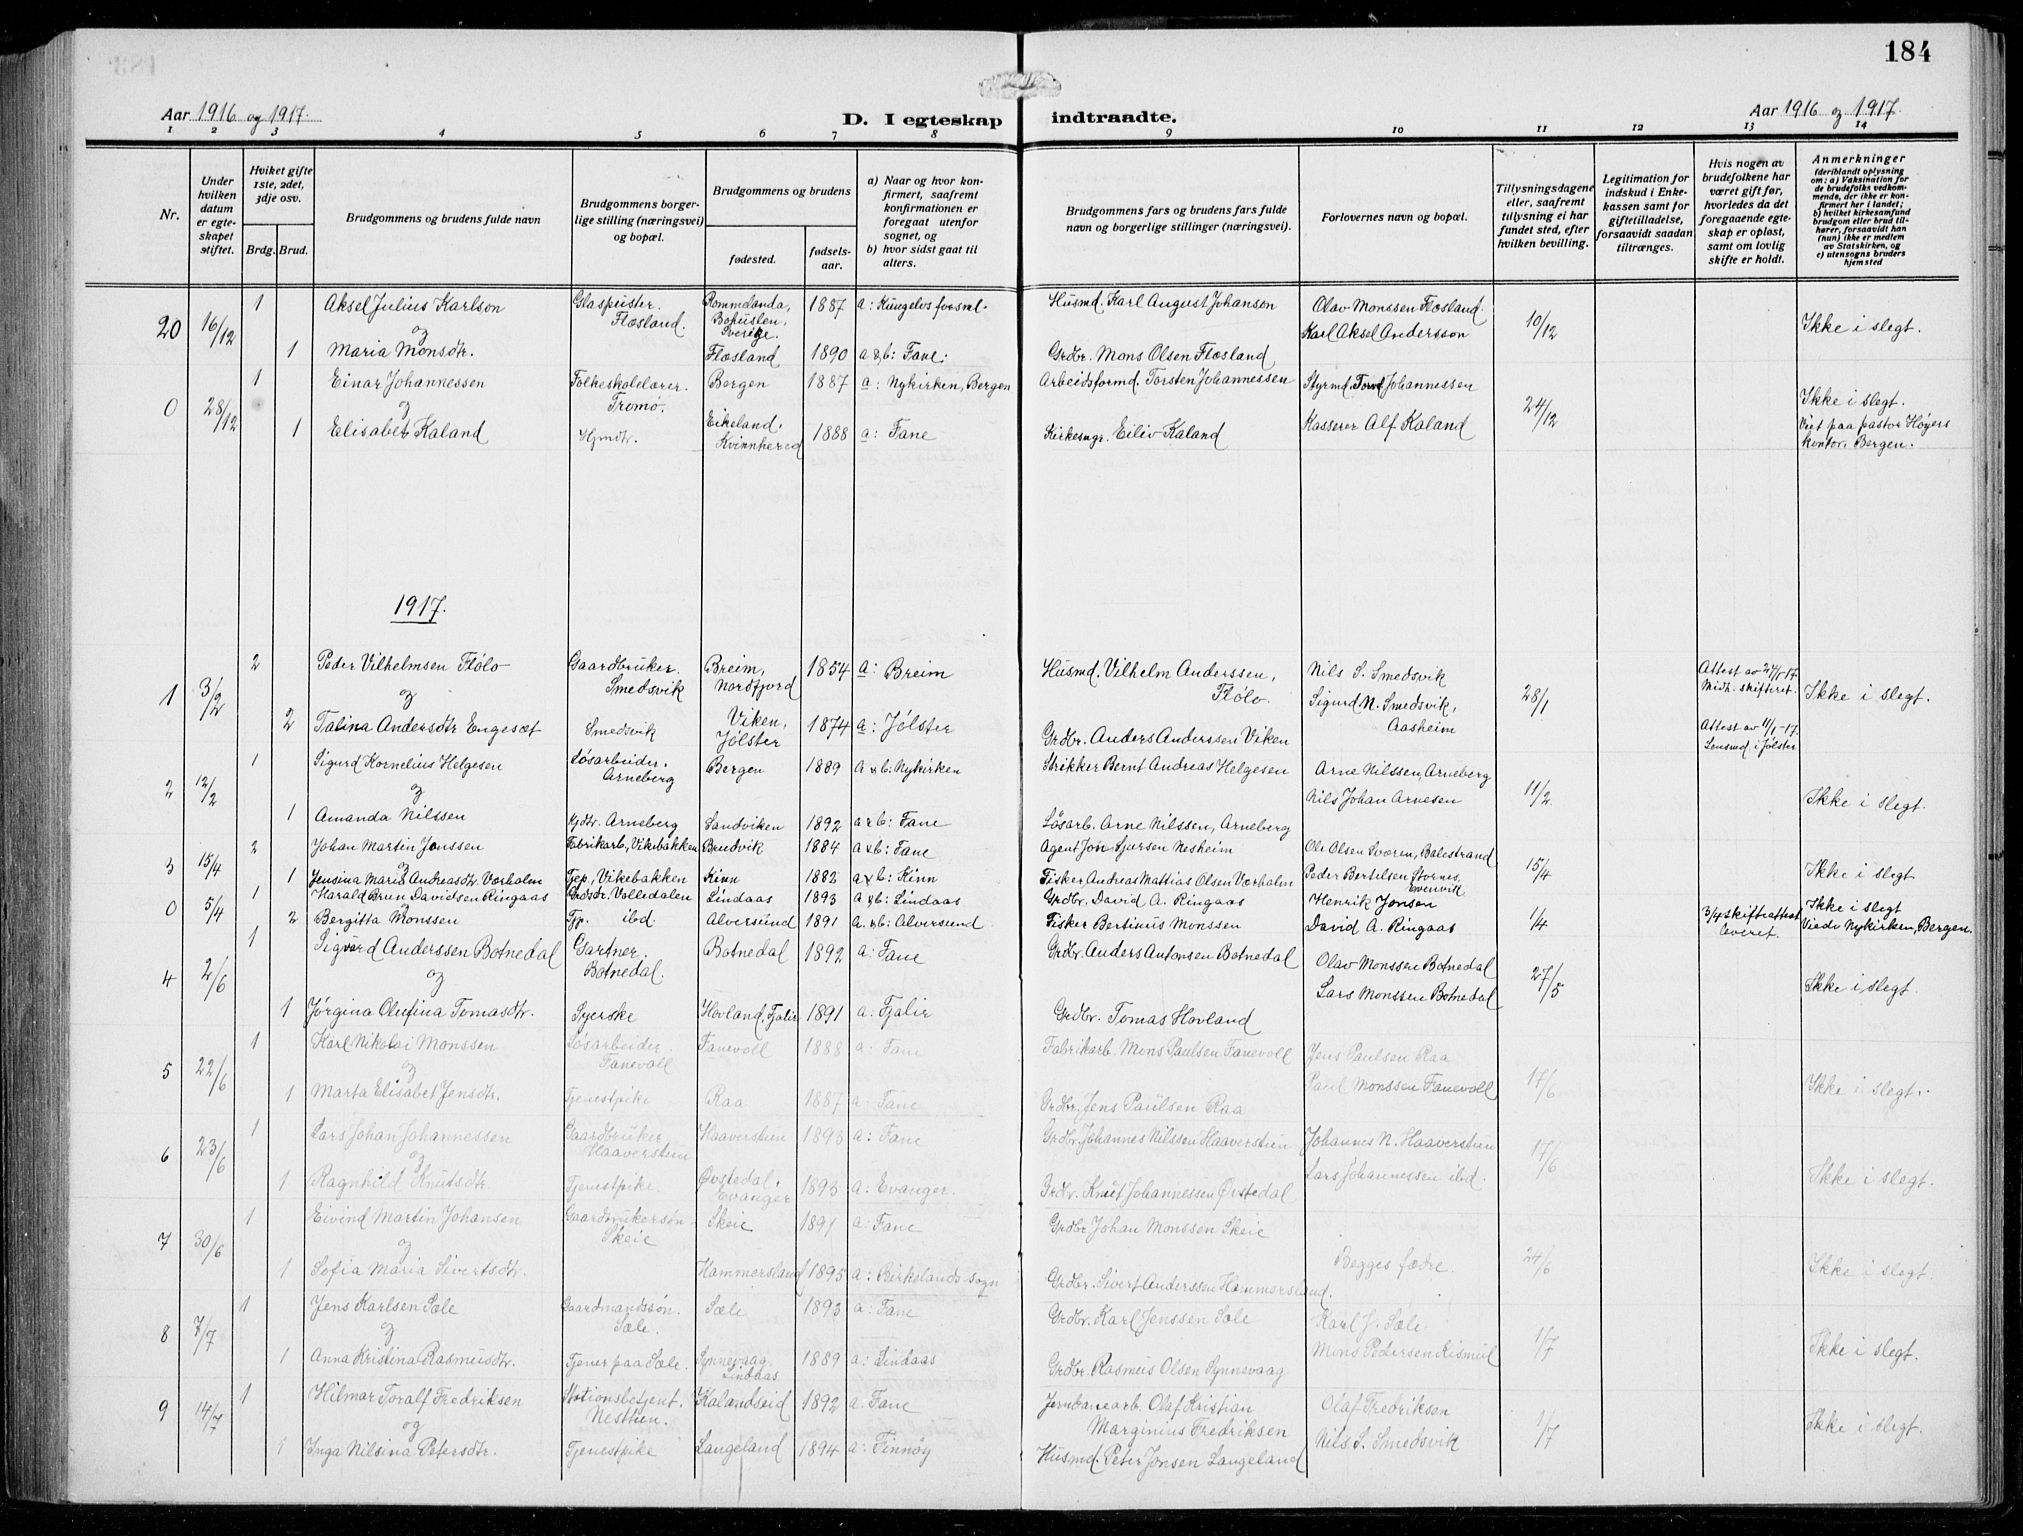 184
Aar 1916 og 1917.
D. I egteskap indtraadte.
Aar 1916 og 1917.
1 2 3 4 5 6 7 8 9 10 11 12 13 14
Nr.
Under hvilken datum er egteskapet stiftet.
Hviket gifte 1ste, 2det, 3dje osv.
Brdg. Brud.
Brudgommens og brudens fulde navn
Brudgommens borgerlige stilling (næringsvei) og bopæl.
Brudgommens og brudens
fødested.
fødselsaar.
a) Naar og hvor konfirmert, saafremt konfirmationen er foregaat utenfor sognet, og
b) hvor sidst gaat til alters.
Brudgommens fars og brudens fars fulde navn og borgerlige stillinger (næringsvei).
Forlovernes navn og bopæl.
Tillysningsdagene eller, saafremt tillysning ei har fundet sted, efter hvilken bevilling.
Legitimation for indskud i Enkekassen samt for giftetilladelse, forsaavidt saadan tiltrænges.
Hvis nogen av brudefolkene har været gift før, hvorledes da det foregaaende egteskap er opløst, samt om lovlig skifte er holdt.
Anmerkninger (deriblandt oplysning om: a) Vaksination for de brudefolks vedkommende, der ikke er konfirmert her i landet; b) hvilket kirkesamfund brudgom eller brud tilhører, forsaavidt han (hun) ikke er medlem av Statskirken, og c) utensogns bruders hjemsted
20 16/12 1 Aksel Julius Karlson Glaspuster. Flæsland. Rommelanda, Bohuslen, Sverige. 1887 Husmd. Karl August Johanson Olav Monssen Flæsland. Karl Aksel Andersson 10/12 Ikke i slegt.
og
1 Maria Monsdtr. Flæsland 1890 a & b: Fane. Grdbr. Mons Olsen Flæsland
0 28/12 1 Einar Johannessen Folkeskolelærer. Tromø. Bergen 1887 a: Nykirken, Bergen Arbeidsformd. Torsten Johannessen Styrmd. Johannessen 24/12 Ikke i slegt.
og
1 Elisabet Kaland Hjmdtr. Eikeland, Kvinnhered 1888 a: Fane Kirkesngr. Eiliv Kaland Kasserer Alf Kaland Viet paa pastor Høyers kontor, Bergen.
1917.
1 3/2 2 Peder Vilhelmsen Flólo Gaardbruker. Smedsvik Breim, Nordfjord 1854 a: Breim Husmd. Vilhelm Anderssen, Flólo. Nils S. Smedsvik 28/1 Attest av 24/1-17. Midh. skifteret. Ikke i slegt.
og
2 Talina Andersdtr Engesæt Smedsvik Viken, Jølster 1874 a: Jølster Grdbr. Anders Anderssen Viken Sigurd N. Smedsvik, Aasheim Attest av 11/1-17. Lensmd. i Jølster
2 12/2 1 Sigurd Kornelius Helgesen Løsarbeider. Arneberg Bergen 1889 a & b: Nykirken Strikker Bernt Andreas Helgesen Arne Nilssen, Arneberg 11/2 Ikke i slegt.
og
1 Amanda Nilssen Hjdtr. Arneberg Sandviken 1892 a & b: Fane Løsarb. Arne Nilssen, Arneberg Nils Johan Arnesen
3 15/4 2 Johan Martin Jonssen Fabrikarb., Vikebakken Bruvik 1884 a & b: Fane Agent Jon Sjursen Nesheim Ole Olsen Sværen, Balestrand 15/4 Ikke i slegt
og
1 Jensina Maria Andreasdtr. Værholm Tjep., Vikebakken Kinn 1882 a & b: Kinn Fisker Andreas Mattias Olsen Værholm Peder Bertelsen Stornes, Evenvik
0 5/4 1 Harald Brun Davidsen Ringaas Grdsdr. Volledalen Lindaas 1893 a & b: Lindaas Grdbr. David A. Ringaas Henrik Jonsen 1/4 3/4 skifteattest leveret. Ikke i slegt
og
2 Bergitta Monssen Tjp. ibd Alversund 1891 a. & b: Alversund Fisker Bertinus Monssen David A. Ringaas Viedv Nykirken, Bergen.
4 2/6 1 Sigurd Anderssen Botnedal Gartner. Botnedal. Botnedal 1892 a: Fane Grdbr. Anders Antonsen Botnedal Olav Monssen Botnedal 27/5 Ikke i slegt.
og
1 Jørgina Olufina Tomasdtr. Syerske Hovland, Fjaler 1891 a: Fjalir Grdbr. Tomas Hovland Lars Monssen Botnedal
5 22/6 1 Karl Nikolai Monssen Løsarbeider. Fanevoll Fanevoll 1888 a: Fane Fabrikarb. Mons Paulsen Fanevoll Jens Paulsen Raa 17/6 Ikke i slegt.
og
1 Marta Elisabet Jensdtr. Tjenestpike Raa 1887 a: Fane Grdbr. Jens Paulsen Raa Paul Monssen Fanevoll
6 23/6 1 Lars Johan Johannessen Gaardbruker Haaverstun Haaverstun 1893 a: Fane Grdbr. Johannes Nilssen Haaverstun Johannes N. Haaverstun 17/6 Ikke i slegt.
og
1 Ragnhild Knutsdtr Tjenestpike. Øvstedal, Evanger 1893 a: Evanger. Grdbr. Knut Johannessen Øvstedal Lars Johannessen ibd.
7 30/6 1 Eivind Martin Johansen Gaardbrukersøn. Skeie Skeie 1891 a: Fane Grdbr Johan Monssen Skeie Begges fædre. 24/6 Ikke i slegt.
og
1 Sofia Maria Sivertsdtr. Hammersland 1895 a: Birkelands sogn Grdbr. Sivert Anderssen Hammersland.
8 7/7 1 Jens Karlsen Sæle Gaardmandssøn. Sæle. Sæle 1893 a: Fane Grdbr. Karl Jenssen Sæle Karl J. Sæle 1/7 Ikke i slegt.
og
1 Anna Kristina Rasmusdtr. Tjener paa Sæle. Synnevaag Lindaas 1889 a: Lindaas Grdbr. Rasmus Olsen Synnevaag Mons Pedersen Rismul
9 14/7 1 Hilmar Toralf Fredriksen Stationsbetjent. Nesttun. Kalandseid 1892 a: Fane Jernbanearb. Olaf Kristian Marginius Fredriksen Olaf Fredriksen 1/7 Ikke i slegt.
og
Inga Nilsina Petersdtr. Tjenestpike Langeland 1894 a: Finnøy Husmd. Peter Jonsen Langeland Nils S. Smedsvik